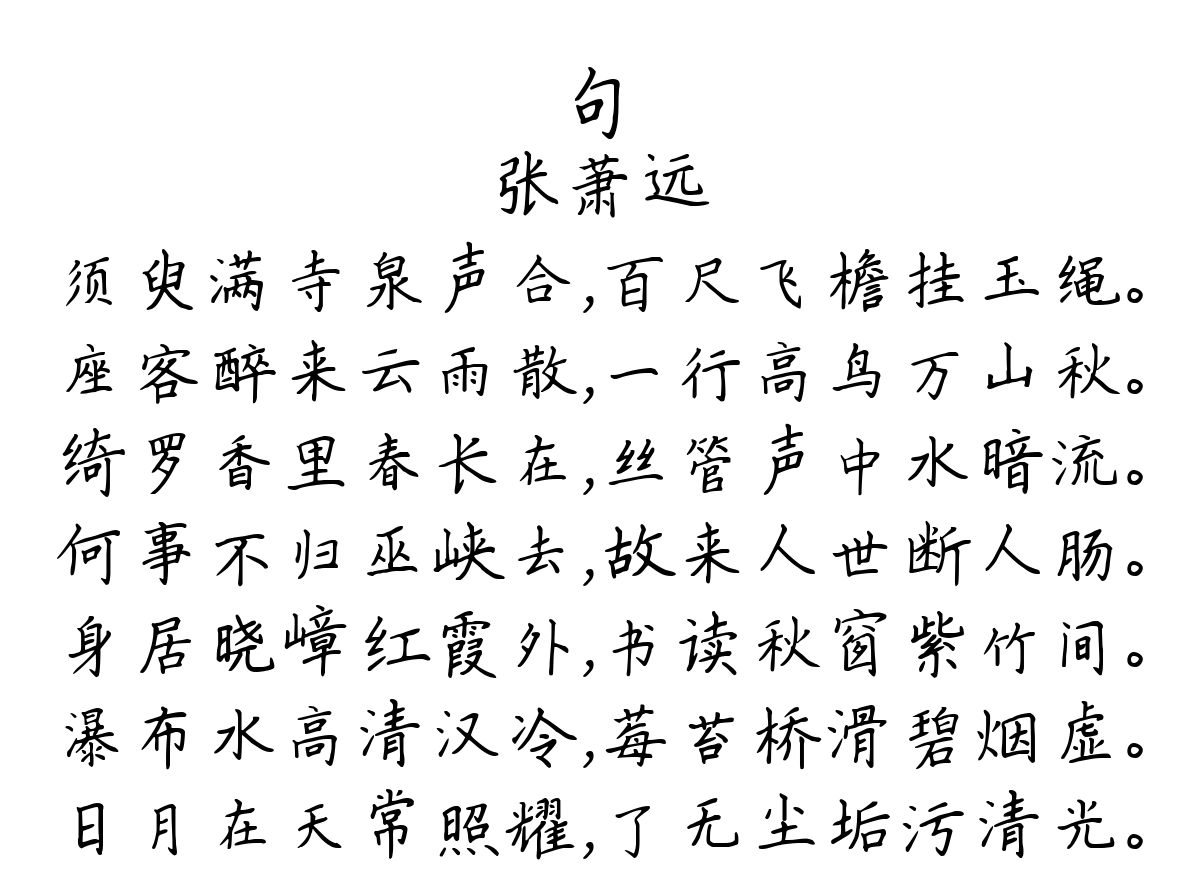 句
张萧远
须臾满寺泉声合,百尺飞檐挂玉绳。
座客醉来云雨散,一行高鸟万山秋。
绮罗香里春长在,丝管声中水暗流。
何事不归巫峡去,故来人世断人肠。
身居晓嶂红霞外,书读秋窗紫竹间。
瀑布水高清汉冷,莓苔桥滑碧烟虚。
日月在天常照耀,了无尘垢污清光。